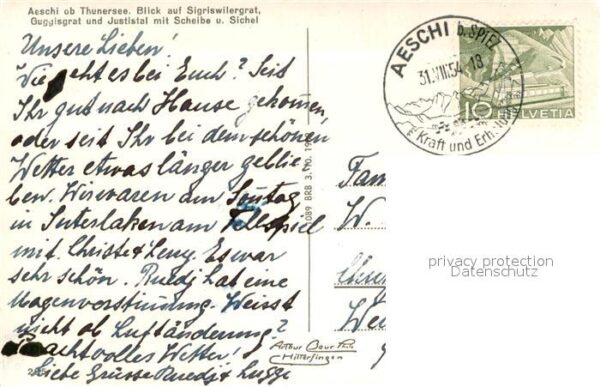 Aeschi ob Thunersee. Blick auf Sigriswilergrat,
Guggisgrat und Justistal mit Scheibe u. Sichel
Unsere Lieben!
Wie geht es bei Euch? Seit
Ihr gut nach Hause gekommen,
oder seit Ihr bei dem schönen
Wetter etwas länger geblie-
ben. Wir waren am Sonntag
in Interlaken am Tellspiel
mit Christel & Leny. Es war
sehr schön. Ruedj hat eine
Magenverstimmung. Weisst
nicht ob Luftänderung?
Prachtvolles Wetter!
Liebe Grüsse Ruedj & Luggi
AESCHI b. SPIEZ
31.VIII.54.-18
Kraft und
10 HELVETIA
1089 BRB 3. No. 19
Fam
W.
We
privacy protection
Datenschutz
Arthur Baur
Hilterfingen